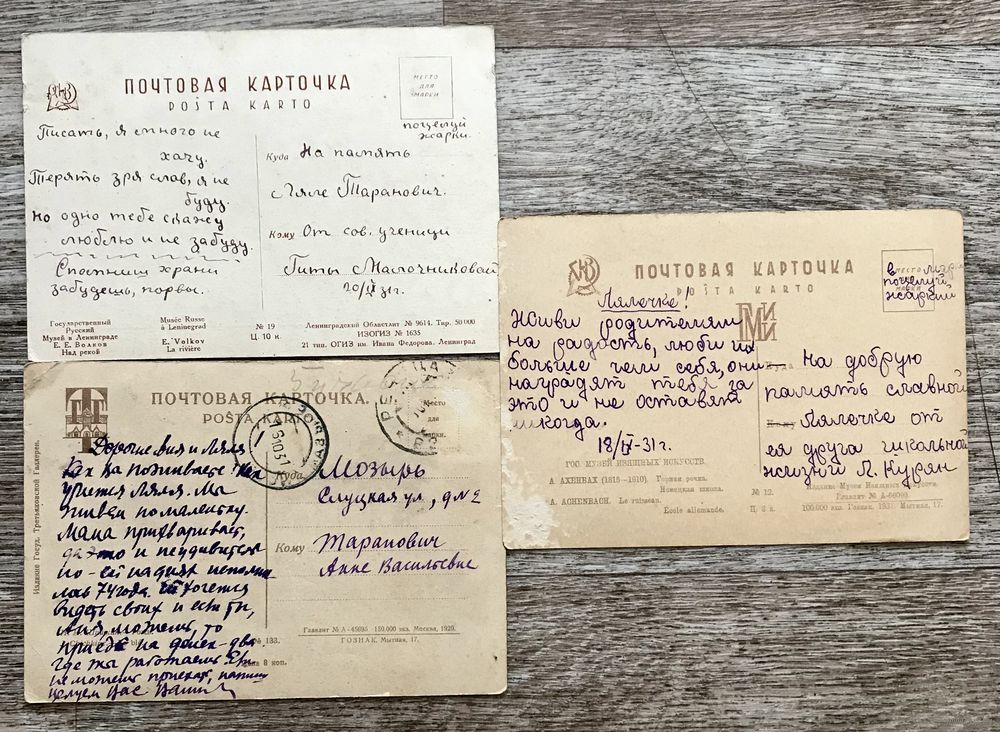 ПОЧТОВАЯ КАРТОЧКА
POŜTA KARTO
МЕСТО
ДЛЯ
МАРКИ
поцелуй
жарки.
Писать, я много не
хачу.
Терять зря слав, я не
буду.
Но одно тебе скажу
люблю и не забуду.
Спапиши храни
забудешь, порвы.
Куда На память
Ляле Таранович.
Кому От сов. ученици
Гиты Маслочниковой
20/IV 31г.
Государственный
Русский
Музей в Ленинграде
Е. Е. Волков
Над рекой
Musée Russe
à Leningrad
E. Volkov
La rivière
№ 19
Ц. 10 к.
Ленинградский Областлит № 9614. Тир. 50 000
ИЗОГИЗ № 1635
21 тип. ОГИЗ им. Ивана Федорова. Ленинград
ПОЧТОВАЯ КАРТОЧКА
POŜTA KARTO
МЕСТО
МАРКИ
в
поцелуй
жаркий
Лялочке!
Живи родителям
на радость, люби их
больше чем себя, они
наградят тебя за
это и не оставят
никогда.
18/IV-31г.
ГМИИ
Куда На добрую
память славной
Кому Лялочке от
ея друга школьной
жизни Л. Курян
ГОС. МУЗЕЙ ИЗЯЩНЫХ ИСКУССТВ.
А. АХЕНБАХ (1815—1910). Горная речка.
Немецкая школа.
A. ACHENBACH. Le ruisseau.
École allemande.
№ 12.
Ц. 8 к.
Издание Музея Изящных Искусств.
Главлит № А-66000.
100.000 экз. Гознак. 1931. Мытная, 17.
ПОЧТОВАЯ КАРТОЧКА.
POŜTA KARTO
Место
для
марки.
Издание Госуд. Третьяковской Галлереи.
Дорогие Аня и Ляля
Как вы поживаете? Как
учится Ляля. Мы
живем помаленьку.
Мама прихварывает,
да это и неудивительно
но-ей на днях исполни
лось 74 года. Хочется
видеть своих и если ты,
Аня можешь, то
приезжай на денек-два
Где ты работаешь? Если
не можешь приехать, напиши
целуем Вас Ваши
Куда Мозырь
Слуцкая ул, д № 2
Кому Таранович
Анне Васильевне
№ 133.
Цена 8 коп.
Главлит № А-45695 — 150.000 экз. Москва, 1929.
ГОЗНАК. Мытная, 17.